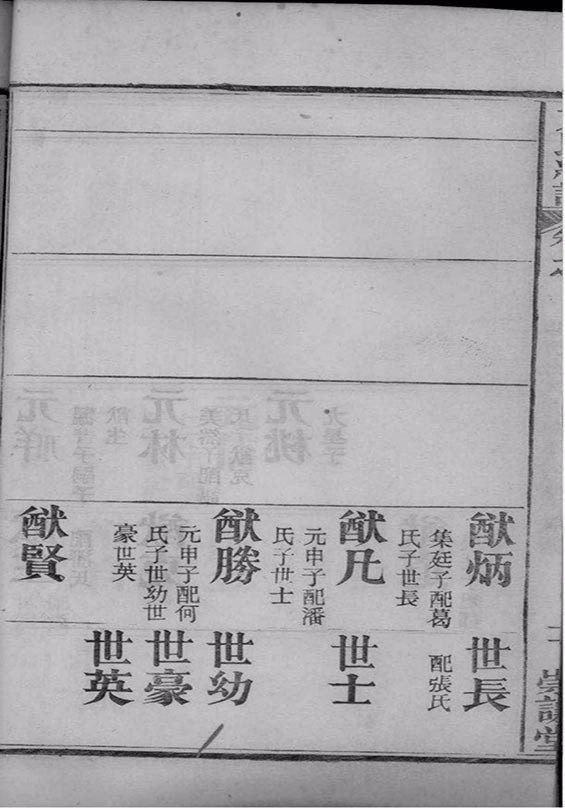 猷炳
集廷子配葛
氏子世長
猷凡
元申子配潘
氏子世士
猷勝
元申子配何
氏子世幼世
豪世英
猷賢
世長
配張氏
世士
世幼
世豪
世英
崇譜堂